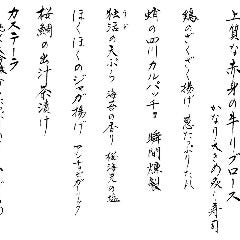 上質な赤身の牛リブロース
かなり大きめ炙り寿司
鶏のざくざく揚げ 葱たっぷりたれ
蛸の四川カルパッチョ 瞬間燻製
独活の天ぷら 海苔の香り 桜海老の塩
うど
ほくほくのジャガ揚げ アンチョビガーリック
桜鯛の出汁茶漬け
カステーラ